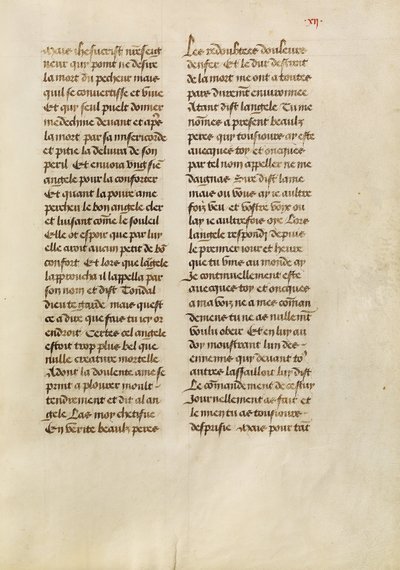 ·xij·
Mais ihesucrist nr̄e seig
neur qui point ne desire
la mort du pecheur mais
quil se conuertisse et viue
Et qui seul puelt donner
medecine deuant et aprēs
la mort par sa misericorde
et pitie la deliura de son
peril Et enuoia vng sie
angele pour la conforter
Et quant la poure ame
percheu le bon angele cler
et luisant com̄e le souleil
Elle ot espoir que par luy
elle aroit aucun petit de bō
confort Et lors que lāgele
lapproucha il lappella par
son nom et dist Tondal
dieu te garde mais quest
ce a dire que fais tu icy or
endroit Certes cel angele
estoit trop plus bel que
nulle creature mortelle
Adont la doulente ame se
prinst a plourer moult
tendrement et dit al an
gele Las moy chetifue
En verite beaulz peres
Les redoubtees douleurs
denfer Et le dur destroit
de la mort me ont a toutes
pars durem̄t enuironnee
Atant dist langele Tu me
nom̄es a present beaulz
peres qui tousiours ay este
auecques toy et oncques
par tel nom appeller ne me
daignas Sire dist lame
mais ou vous ay ie aultre
fois veu et vostre voix ou
lay ie aultrefois oye Lors
langele respondj depuis
le premier iour et heure
que tu vins au monde ay
Je continuellement este
auecques toy et oncques
a ma voix ne a mes com̄an
demens tu ne as nullem̄t
voulu obeir Et en luy au
doy moustrant lun des
ennemis qui deuant to9
autres lassailloit luy dist
Le com̄andement de cestuy
Journellement as fait et
le mien tu as tousiours
desprisie Mais pour tāt